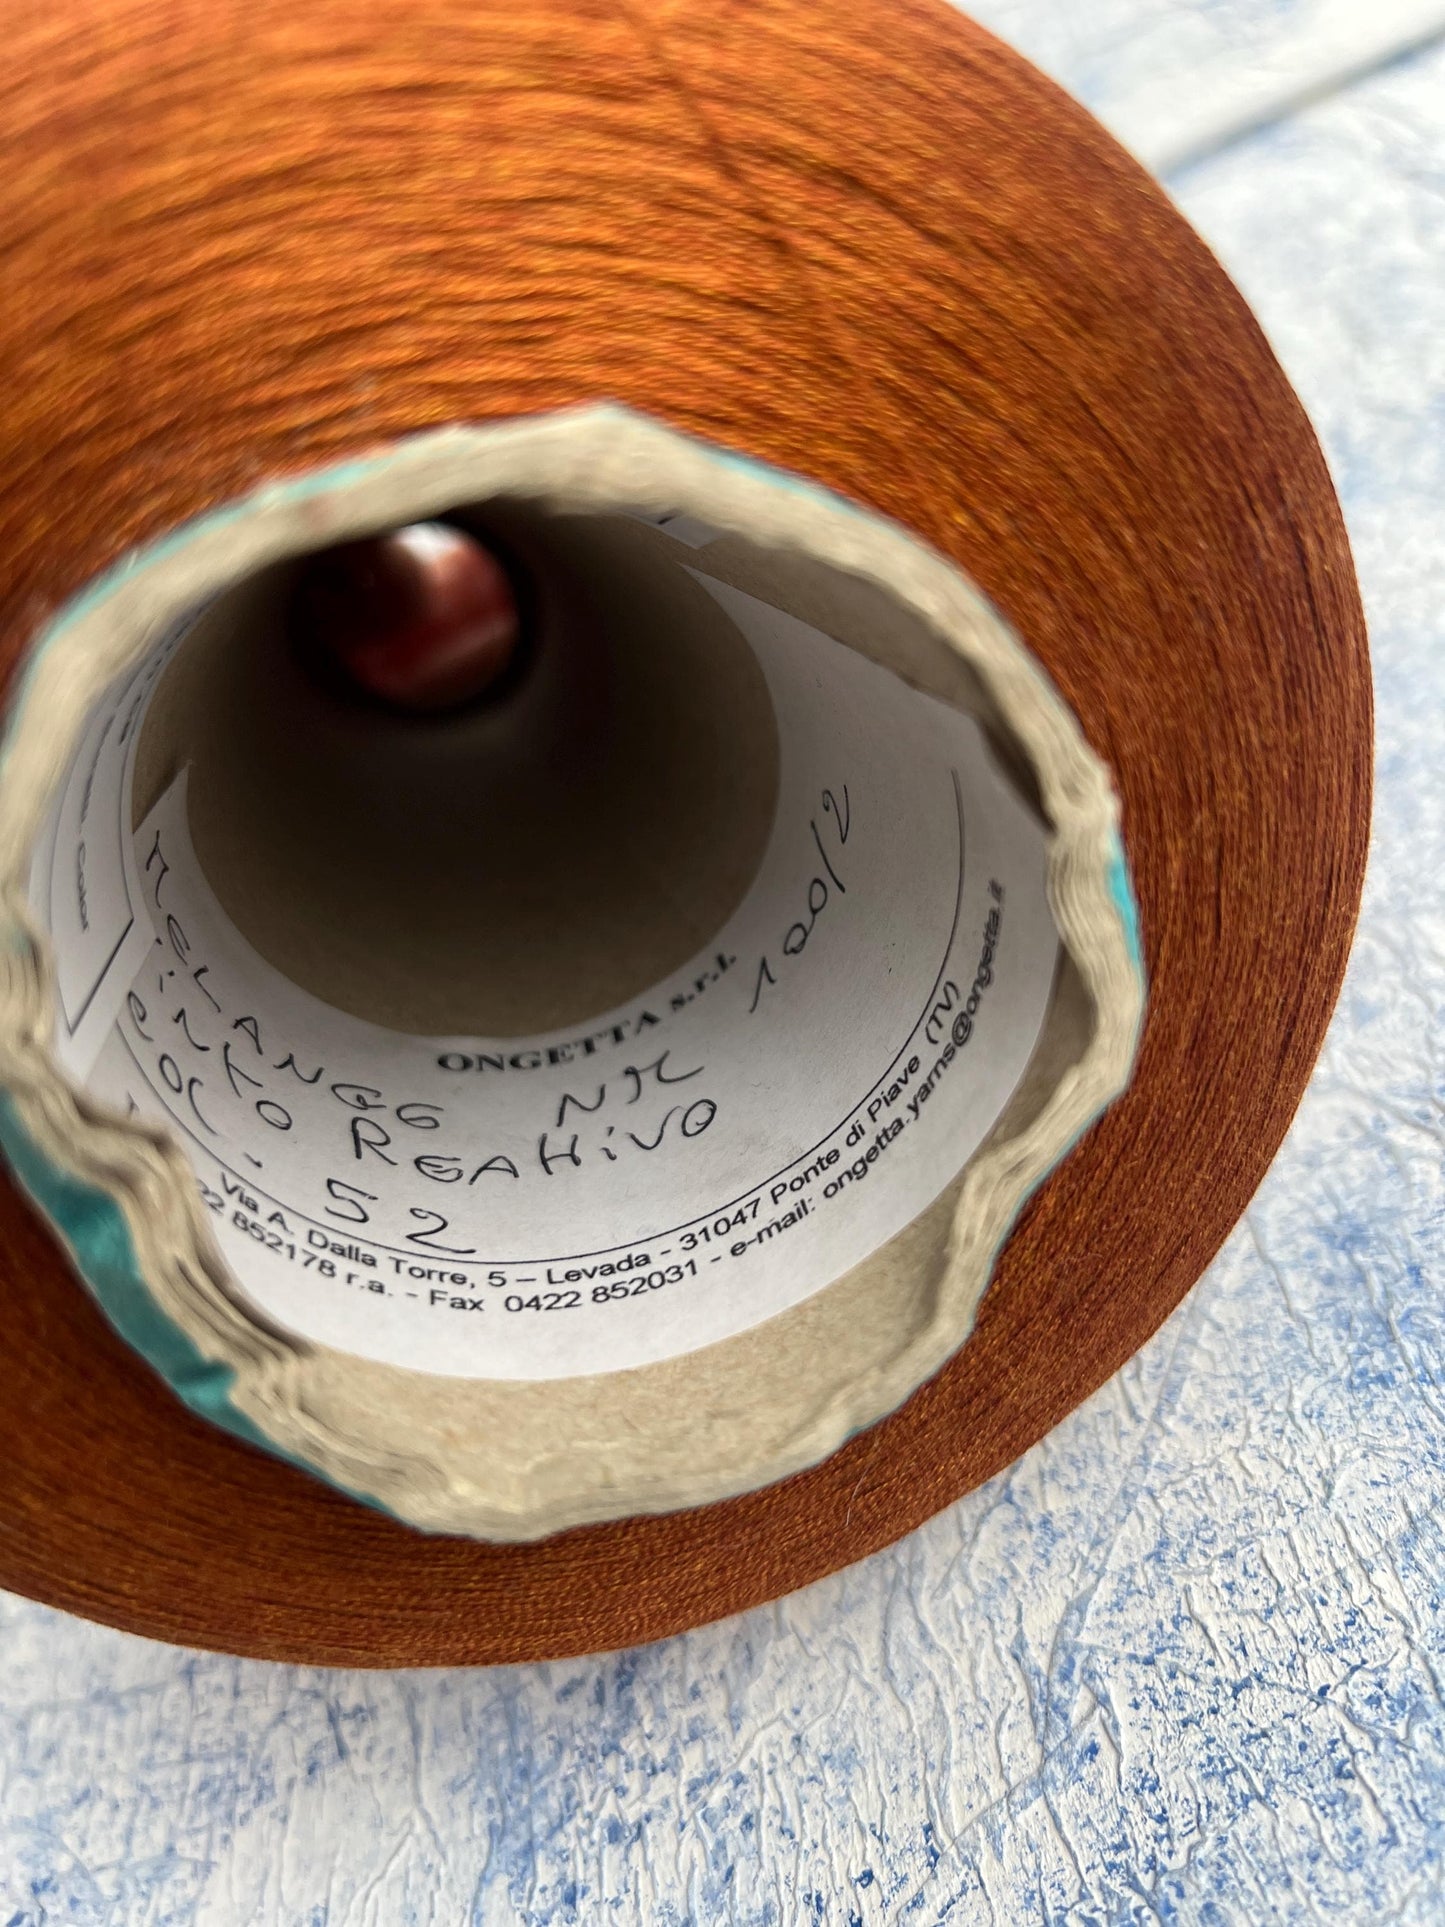 ONGETTA s.r.l.
MELANGE NM 100/2
COL. 52
Via A. Dalla Torre, 5 – Levada - 31047 Ponte di Piave (TV)
22 852178 r.a. - Fax 0422 852031 - e-mail: ongetta.yarns@ongetta.it
Color